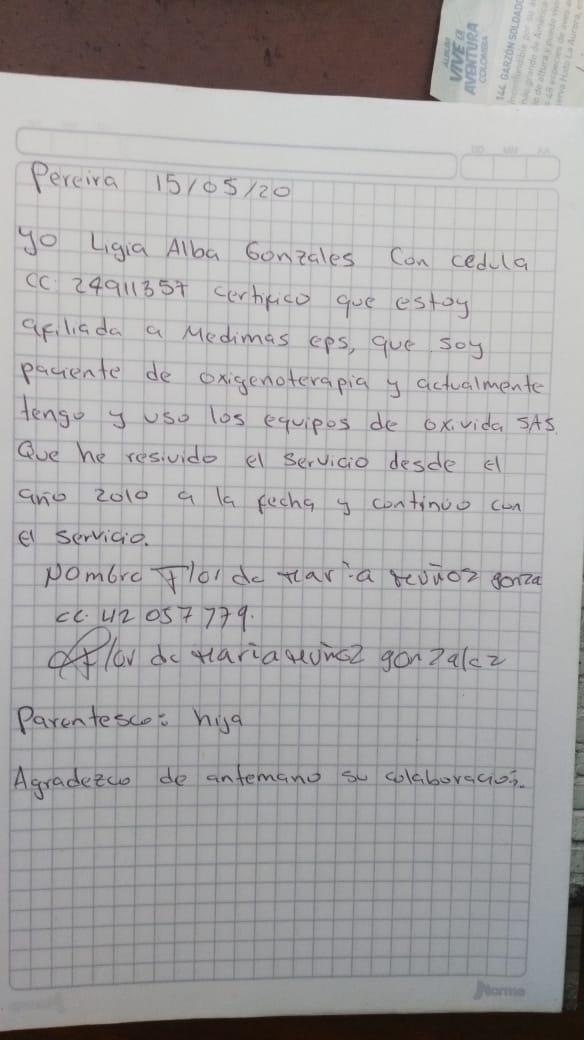 ALBUM
VIVE LA
AVENTURA
COLOMBIA
144 GARZÓN SOLDADO
DD MM AA
Pereira 15/05/20
yo Ligia Alba Gonzales Con cedula
CC. 24911357 certifico que estoy
afiliada a Medimas eps, que soy
paciente de oxigenoterapia y actualmente
tengo y uso los equipos de oxivida SAS.
Que he resivido el servicio desde el
año 2010 a la fecha y continúo con
el servicio.
Nombre Flor de Maria Muñoz gonza
cc. 42 057 779.
Flor de Maria Muñoz gonzalez
Parentesco: hija
Agradezco de antemano su colaboración.
Norma